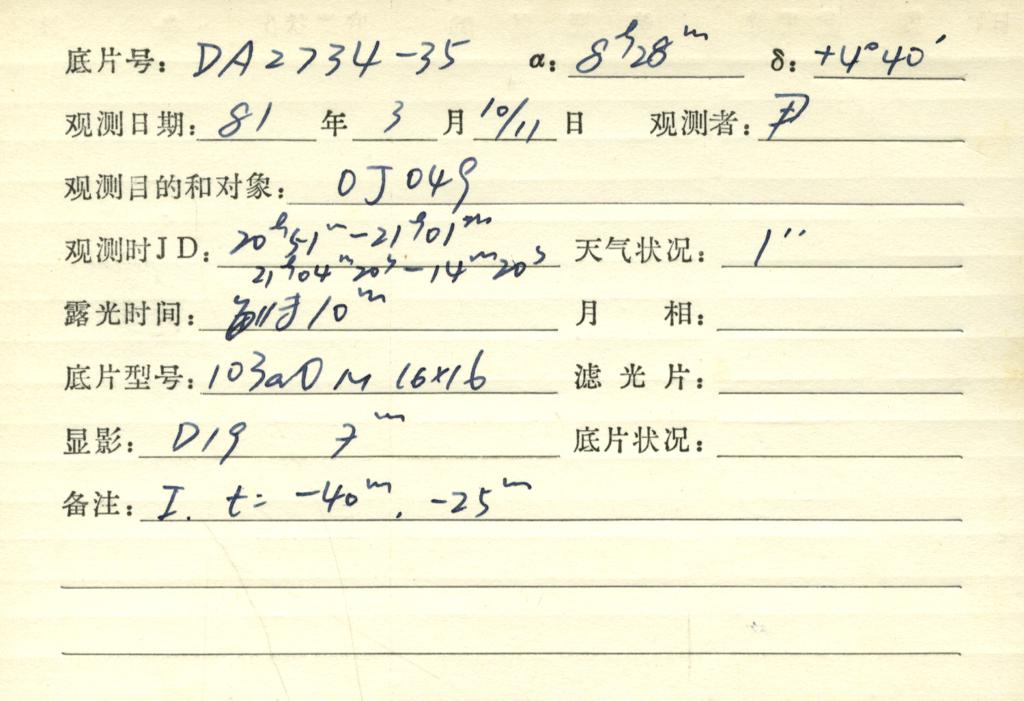 底片号: DA2734-35 α: 8ʰ28ᵐ δ: +4°40′
观测日期: 81 年 3 月 10/11 日 观测者:
观测目的和对象: OJ049
观测时JD: 20ʰ51ᵐ-21ʰ01ᵐ 天气状况: 1″
21ʰ04ᵐ20ˢ-14ᵐ20ˢ
露光时间: 10ᵐ 月 相:
底片型号: 103aD M 16×16 滤光片:
显影: D19 7ᵐ 底片状况:
备注: I. t= -40ᵐ. -25ᵐ